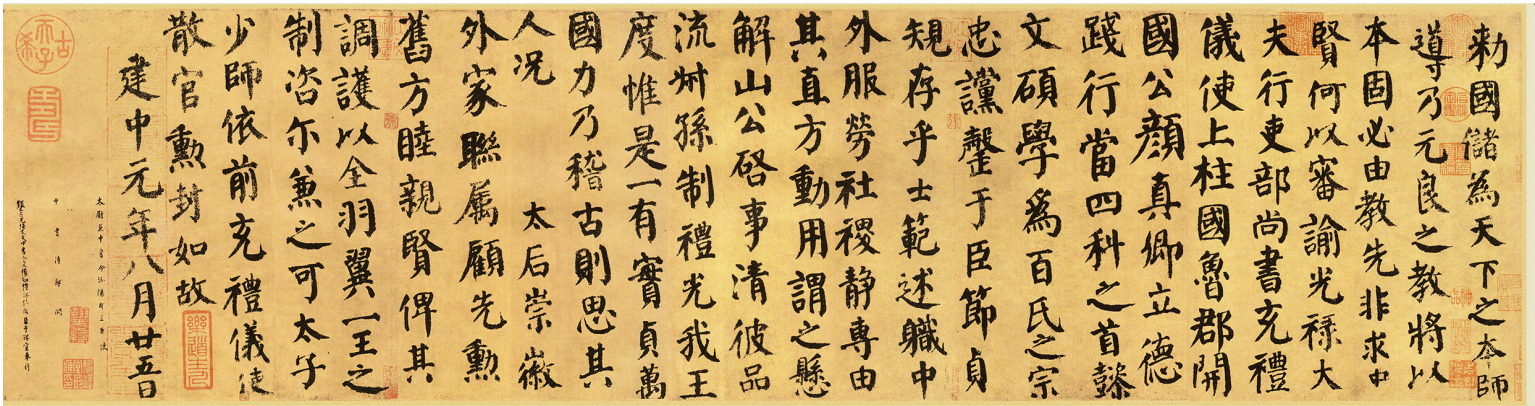 勅國儲為天下之本師
導乃元良之教將以
本固必由教先非求忠
賢何以審諭光祿大
夫行吏部尚書充禮
儀使上柱國魯郡開
國公顏真卿立德
踐行當四科之首懿
文碩學爲百氏之宗
忠讜罄于臣節貞
規存乎士範述職中
外服勞社稷靜專由
其直方動用謂之懸
解山公啓事清彼品
流叔孫制禮光我王
度惟是一有實貞萬
國力乃稽古則思其
人况 太后崇徽
外家聯属顧先勳
舊方睦親賢俾其
調護以全羽翼一王之
制咨尔兼之可太子
少師依前充禮儀使
散官勳封如故
建中元年八月廿五日
太尉兼中書令汾陽郡王